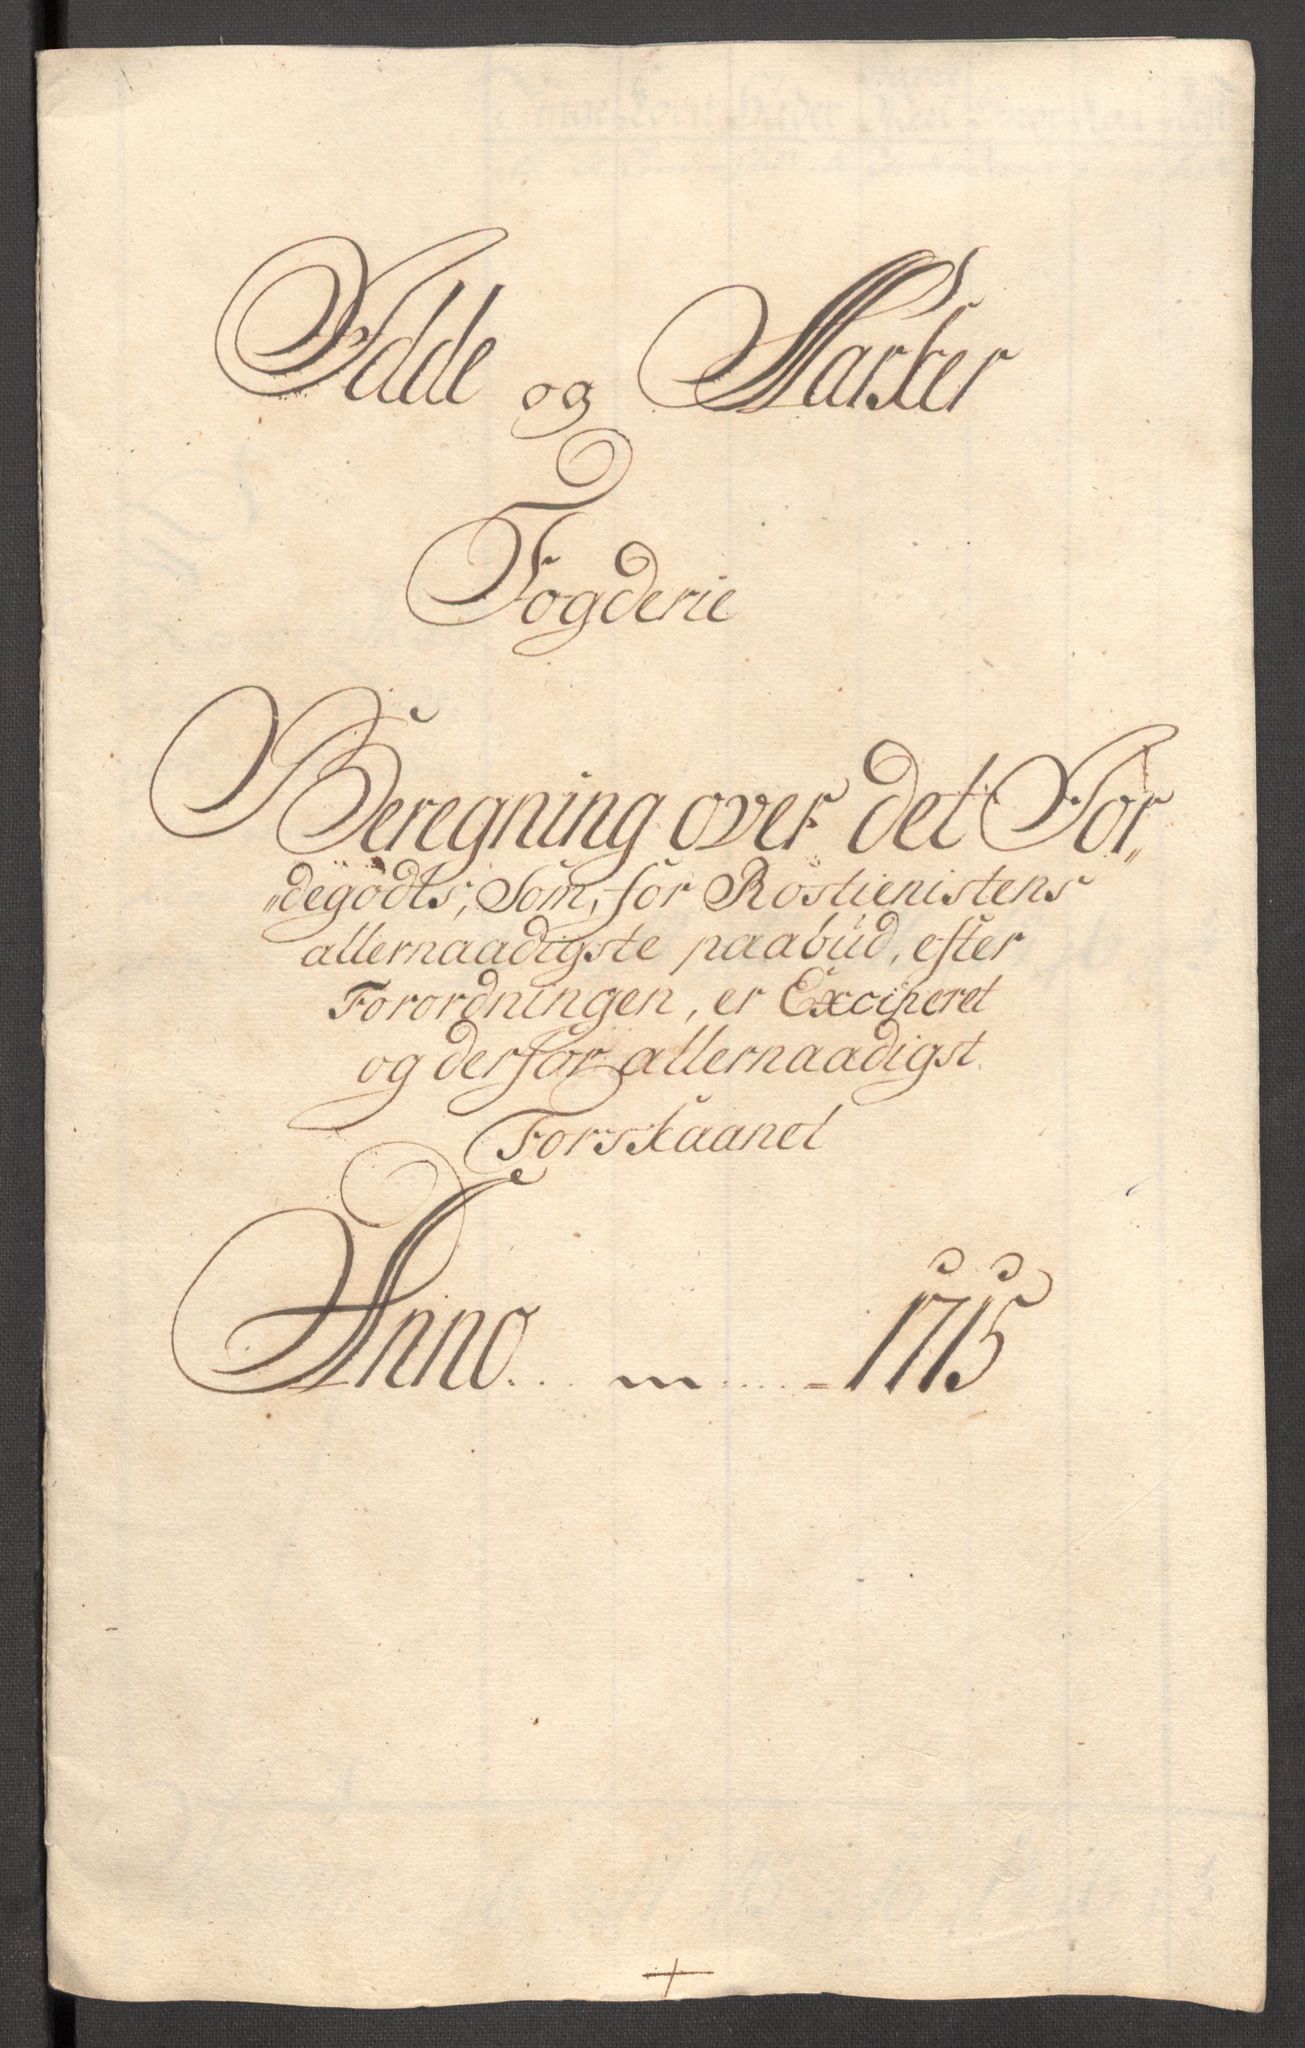 Idde og Marker
Fogderie
Beregning over det Jor„
„degodts, Som, for Rostienistens
allernaadigste paabud, efter
Forordningen, er Exciperet
og derfor allernaadigst
Forskaanet
Anno . . . 1715